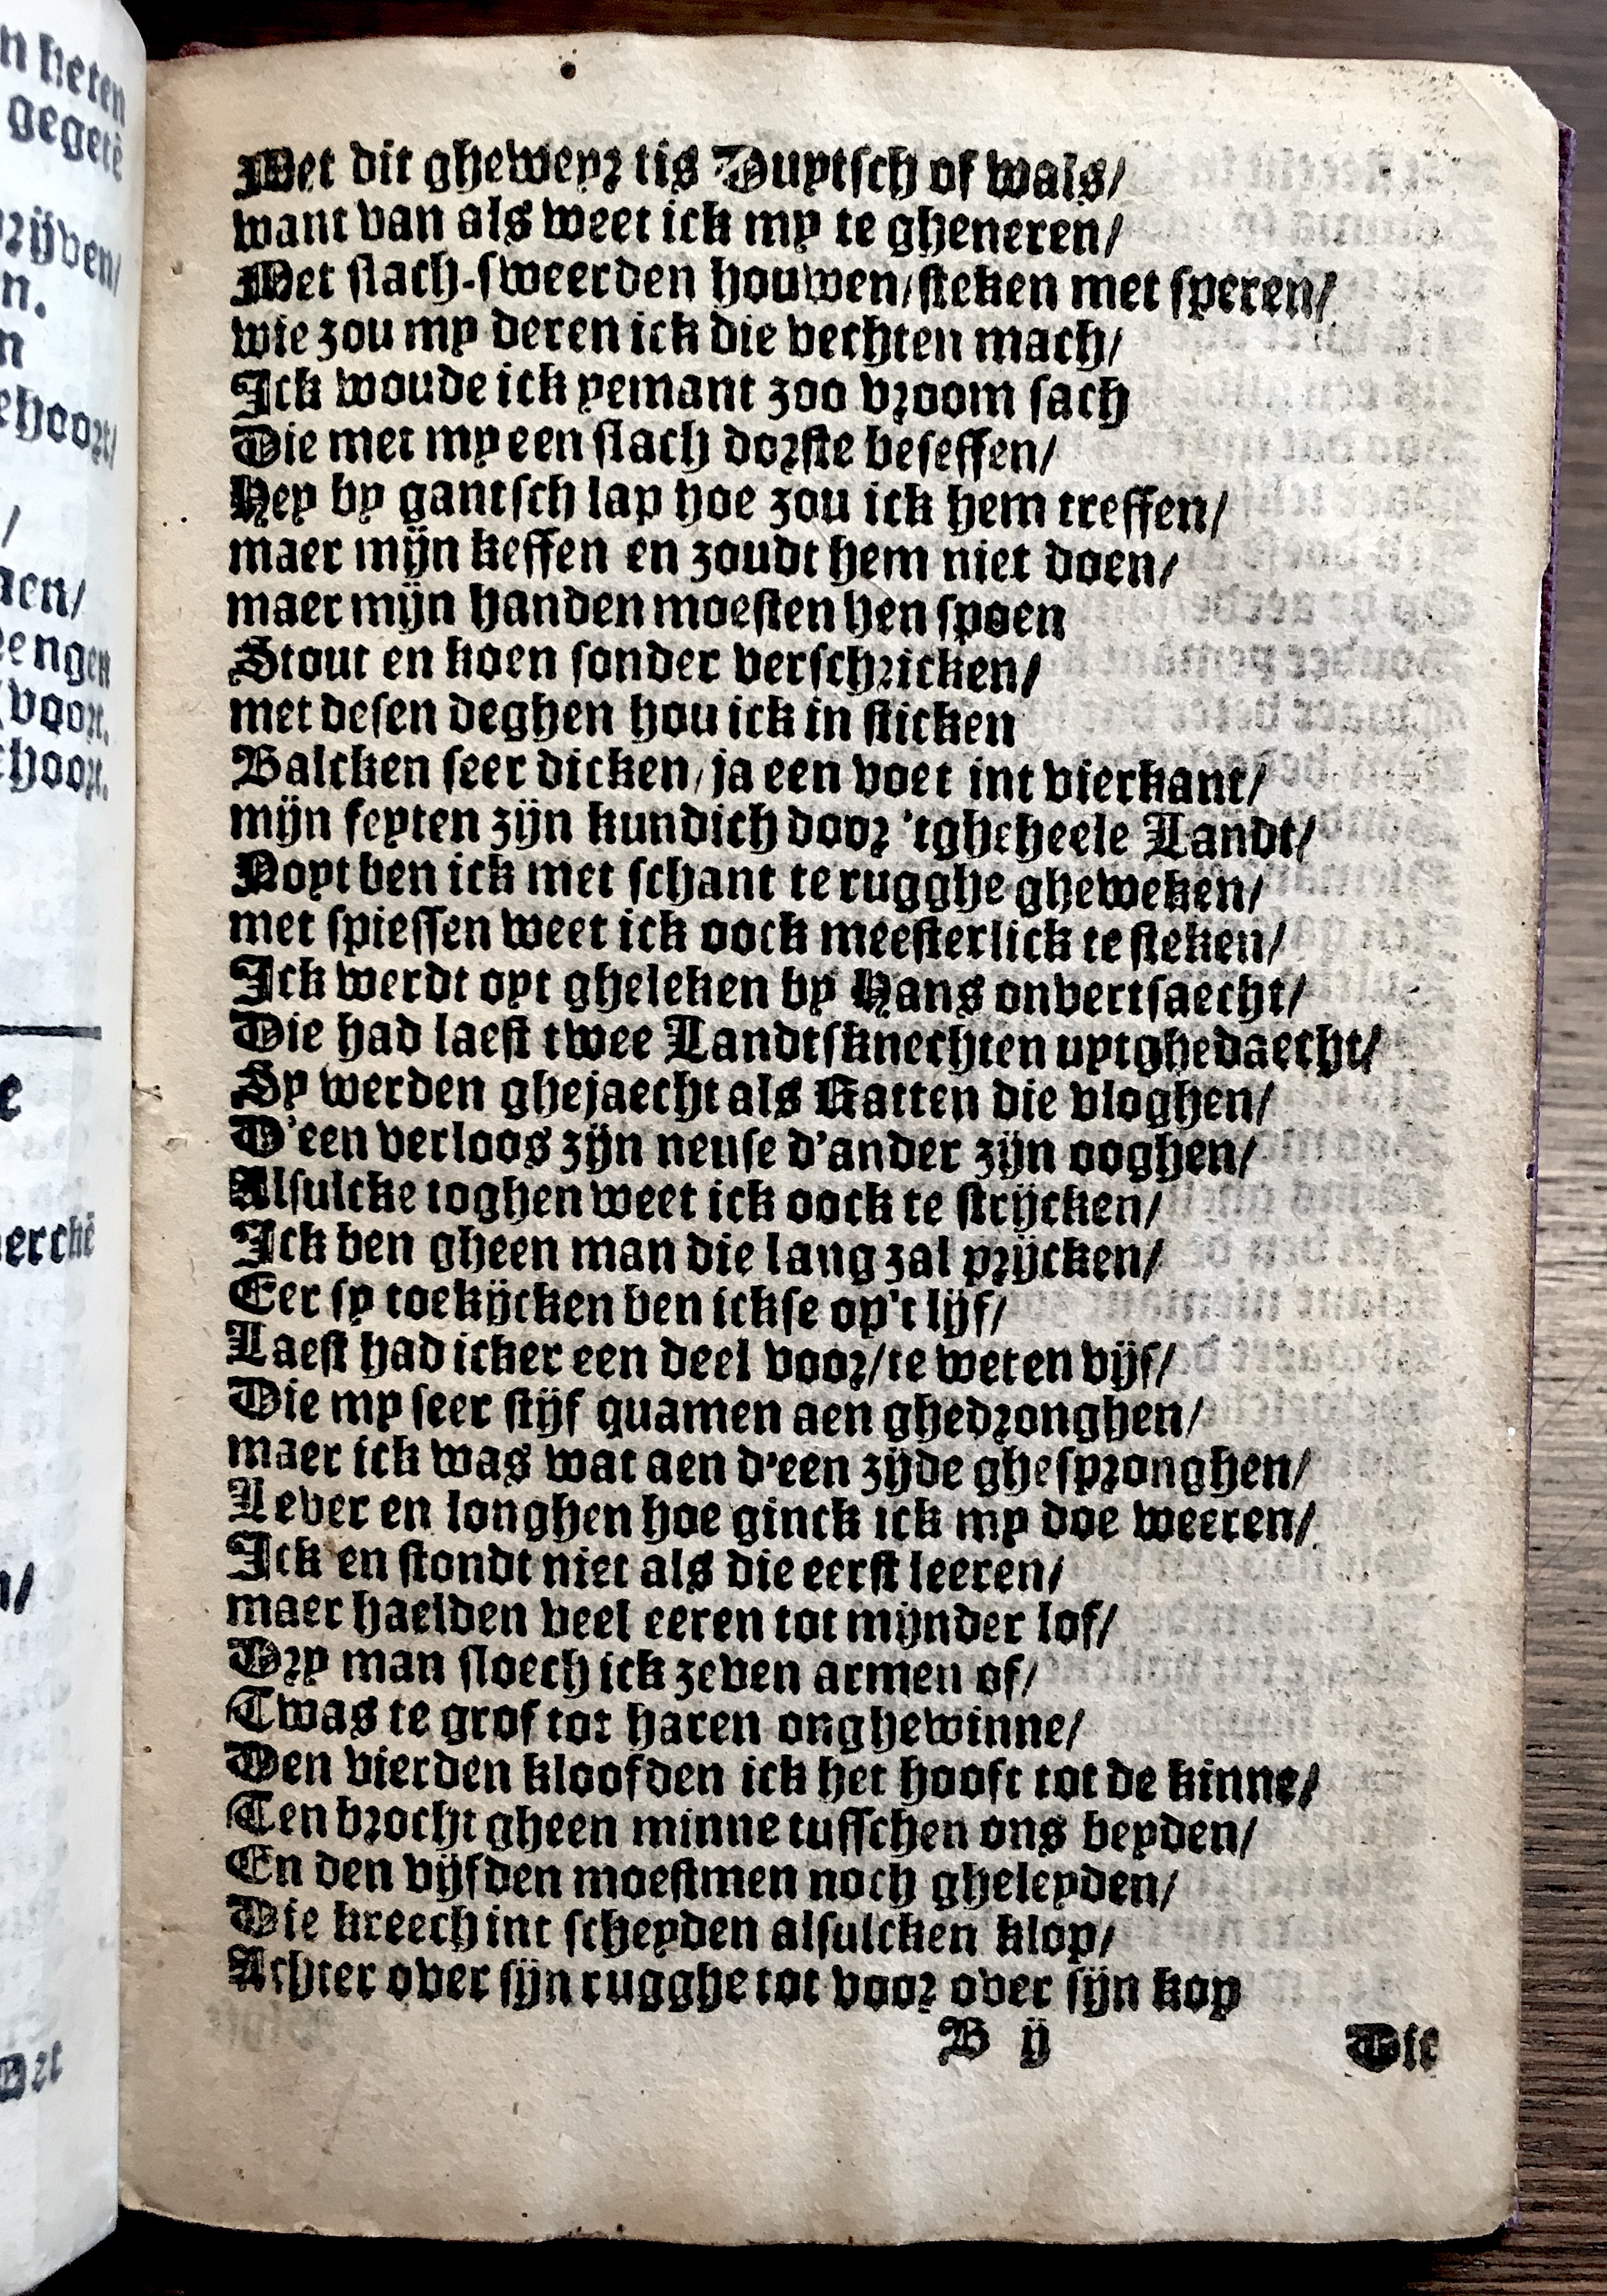 Met dit gheweyr tis Duytsch of wals/
want van als weet ick my te gheneren/
Met slach-sweerden houwen/steken met speren/
wie zou my deren ick die vechten mach/
Ick woude ick yemant zoo vroom sach
Die met my een slach dorste beseffen/
Hey by gantsch lap hoe zou ick hem treffen/
maer mijn keffen en zoudt hem niet doen/
maer mijn handen moesten hen spoen
Stout en koen sonder verschricken/
met desen deghen hou ick in sticken
Balcken seer dicken/ja een voet int vierkant/
mijn feyten zijn kundich door 'tgheheele Landt/
Noyt ben ick met schant te rugghe gheweken/
met spiessen weet ick oock meesterlick te steken/
Ick werdt oyt gheleken by Hans onvertsaecht/
Die had laest twee Landtsknechten uytghedaecht/
Sy werden ghejaecht als Katten die vloghen/
D'een verloos zijn neuse d'ander zijn ooghen/
Alsulcke toghen weet ick oock te strijcken/
Ick ben gheen man die lang zal prijcken/
Eer sy toekijcken ben ickse op't lijf/
Laest had icker een deel voor/te weten vijf/
Die my seer stijf quamen aen ghedronghen/
maer ick was wat aen d'een zijde ghespronghen/
Lever en longhen hoe ginck ick my doe weeren/
Ick en stondt niet als die eerst leeren/
maer haelden veel eeren tot mijnder lof/
Dry man sloech ick zeven armen of/
Twas te grof tot haren onghewinne/
Den vierden kloofden ick het hooft tot de kinne/
Ten brocht gheen minne tusschen ons beyden/
En den vijfden moestmen noch gheleyden/
Die kreech int scheyden alsulcken klop/
Achter over sijn rugghe tot voor over sijn kop
B ij Die